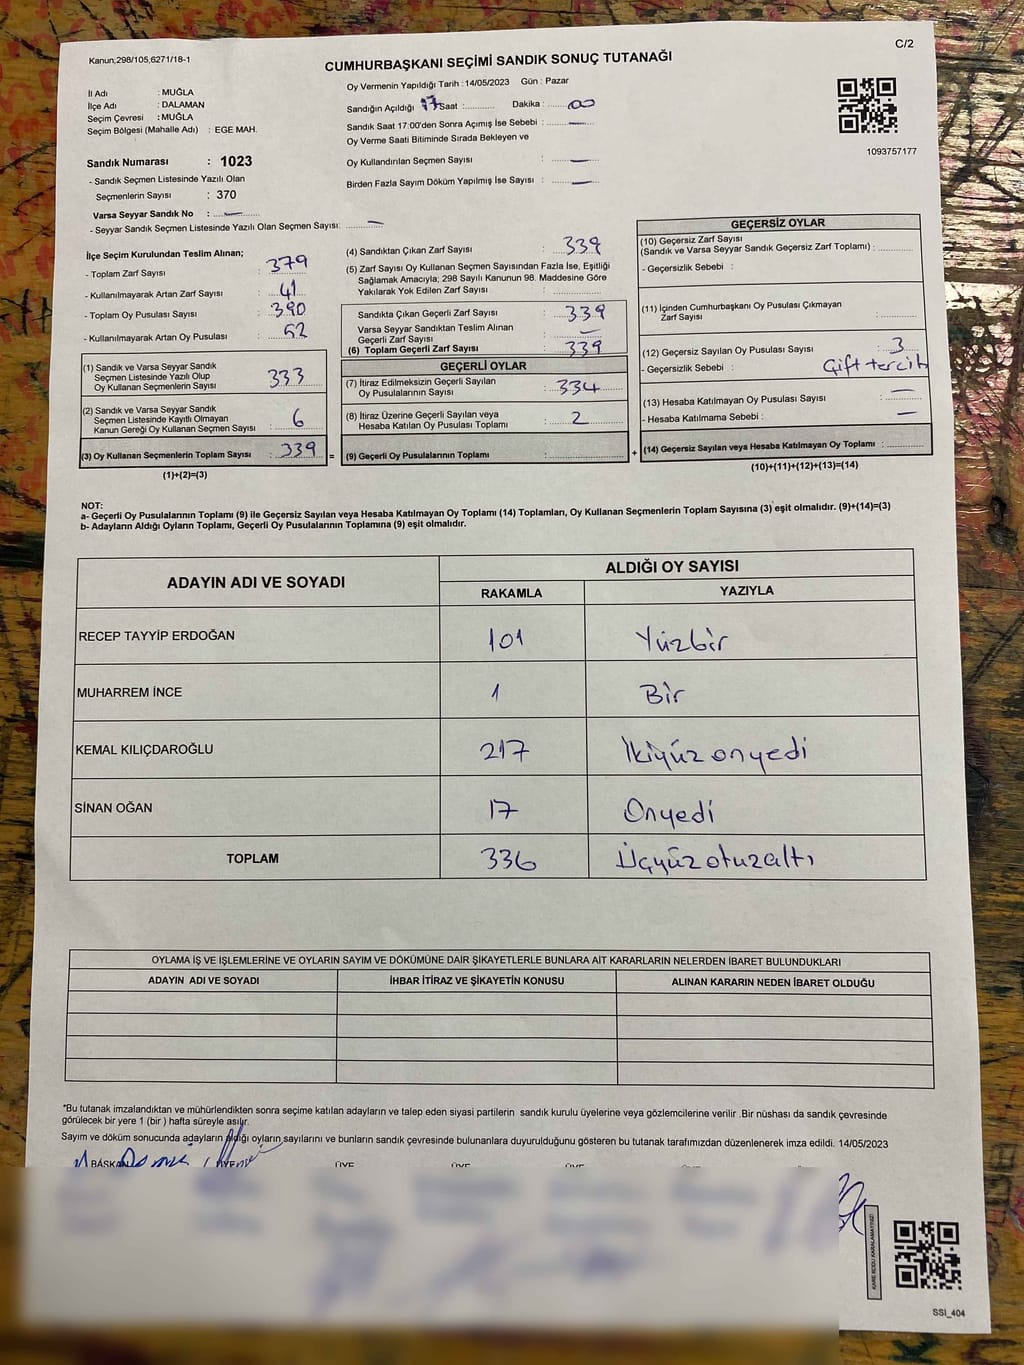 Kanun;298/105,6271/18-1
C/2
CUMHURBAŞKANI SEÇİMİ SANDIK SONUÇ TUTANAĞI
İl Adı : MUĞLA
İlçe Adı : DALAMAN
Seçim Çevresi : MUĞLA
Seçim Bölgesi (Mahalle Adı) : EGE MAH.
Oy Vermenin Yapıldığı Tarih :14/05/2023 Gün : Pazar
Sandığın Açıldığı 17 Saat :.......... Dakika : 00
Sandık Saat 17:00'den Sonra Açımış İse Sebebi : —
Oy Verme Saati Bitiminde Sırada Bekleyen ve
Oy Kullandırılan Seçmen Sayısı : —
Birden Fazla Sayım Döküm Yapılmış İse Sayısı : —
1093757177
Sandık Numarası : 1023
- Sandık Seçmen Listesinde Yazılı Olan
Seçmenlerin Sayısı : 370
Varsa Seyyar Sandık No : —
- Seyyar Sandık Seçmen Listesinde Yazılı Olan Seçmen Sayısı: —
İlçe Seçim Kurulundan Teslim Alınan;
- Toplam Zarf Sayısı : 379
- Kullanılmayarak Artan Zarf Sayısı : 41
- Toplam Oy Pusulası Sayısı : 390
- Kullanılmayarak Artan Oy Pusulası : 52
(1) Sandık ve Varsa Seyyar Sandık
Seçmen Listesinde Yazılı Olup
Oy Kullanan Seçmenlerin Sayısı : 333
(2) Sandık ve Varsa Seyyar Sandık
Seçmen Listesinde Kayıtlı Olmayan
Kanun Gereği Oy Kullanan Seçmen Sayısı : 6
(3) Oy Kullanan Seçmenlerin Toplam Sayısı : 339
(1)+(2)=(3)
(4) Sandıktan Çıkan Zarf Sayısı : 339
(5) Zarf Sayısı Oy Kullanan Seçmen Sayısından Fazla İse, Eşitliği
Sağlamak Amacıyla; 298 Sayılı Kanunun 98. Maddesine Göre
Yakılarak Yok Edilen Zarf Sayısı :
Sandıkta Çıkan Geçerli Zarf Sayısı : 339
Varsa Seyyar Sandıktan Teslim Alınan
Geçerli Zarf Sayısı : —
(6) Toplam Geçerli Zarf Sayısı : 339
GEÇERLİ OYLAR
(7) İtiraz Edilmeksizin Geçerli Sayılan
Oy Pusulalarının Sayısı : 334
(8) İtiraz Üzerine Geçerli Sayılan veya
Hesaba Katılan Oy Pusulası Toplamı : 2
=
(9) Geçerli Oy Pusulalarının Toplamı :
+
GEÇERSİZ OYLAR
(10) Geçersiz Zarf Sayısı
(Sandık ve Varsa Seyyar Sandık Geçersiz Zarf Toplamı) :
- Geçersizlik Sebebi :
(11) İçinden Cumhurbaşkanı Oy Pusulası Çıkmayan
Zarf Sayısı :
(12) Geçersiz Sayılan Oy Pusulası Sayısı : 3
- Geçersizlik Sebebi : Çift tercih
(13) Hesaba Katılmayan Oy Pusulası Sayısı : —
- Hesaba Katılmama Sebebi : —
(14) Geçersiz Sayılan veya Hesaba Katılmayan Oy Toplamı :
(10)+(11)+(12)+(13)=(14)
NOT:
a- Geçerli Oy Pusulalarının Toplamı (9) ile Geçersiz Sayılan veya Hesaba Katılmayan Oy Toplamı (14) Toplamları, Oy Kullanan Seçmenlerin Toplam Sayısına (3) eşit olmalıdır. (9)+(14)=(3)
b- Adayların Aldığı Oyların Toplamı, Geçerli Oy Pusulalarının Toplamına (9) eşit olmalıdır.
ADAYIN ADI VE SOYADI
ALDIĞI OY SAYISI
RAKAMLA YAZIYLA
RECEP TAYYİP ERDOĞAN 101 Yüzbir
MUHARREM İNCE 1 Bir
KEMAL KILIÇDAROĞLU 217 İkiyüzonyedi
SİNAN OĞAN 17 Onyedi
TOPLAM 336 Üçyüzotuzaltı
OYLAMA İŞ VE İŞLEMLERİNE VE OYLARIN SAYIM VE DÖKÜMÜNE DAİR ŞİKAYETLERLE BUNLARA AİT KARARLARIN NELERDEN İBARET BULUNDUKLARI
ADAYIN ADI VE SOYADI İHBAR İTİRAZ VE ŞİKAYETİN KONUSU ALINAN KARARIN NEDEN İBARET OLDUĞU
*Bu tutanak imzalandıktan ve mühürlendikten sonra seçime katılan adayların ve talep eden siyasi partilerin sandık kurulu üyelerine veya gözlemcilerine verilir .Bir nüshası da sandık çevresinde
görülecek bir yere 1 (bir ) hafta süreyle asılır.
Sayım ve döküm sonucunda adayların aldığı oyların sayılarını ve bunların sandık çevresinde bulunanlara duyurulduğunu gösteren bu tutanak tarafımızdan düzenlenerek imza edildi. 14/05/2023
BAŞKAN ÜYE ÜYE ÜYE ÜYE
KARE KODU KARALAMAYINIZ!
SSİ_404